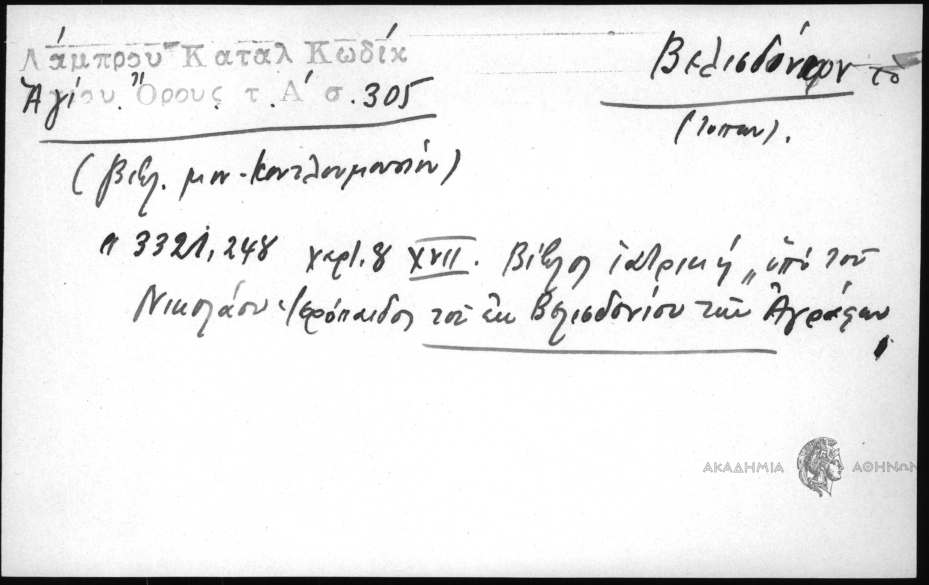 Λάμπρου Καταλ Κωδίκ
Ἁγίου Ὄρους τ. Α΄ σ. 305
Βελισδόνιον το
(τοπων).
(Βιβλ. μον. Κουτλουμουσίου)
3321, 248 χαρτ. 8 XVII. Βίβλος ἰατρική „ὑπὸ τοῦ
Νικολάου Ἱερόπαιδος τοῦ ἐκ Βελισδονίου τῶν Ἀγράφων
ΑΚΑΔΗΜΙΑ ΑΘΗΝΩΝ